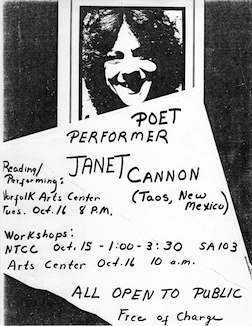 POET
PERFORMER
JANET CANNON
(Taos, New
Mexico)
Reading/
Performing:
Norfolk Arts Center
Tues. Oct. 16 8 P.M.
Workshops:
NTCC Oct. 15 - 1:00 - 3:30 SA103
Arts Center Oct. 16 10 a.m.
ALL OPEN TO PUBLIC
Free of Charge